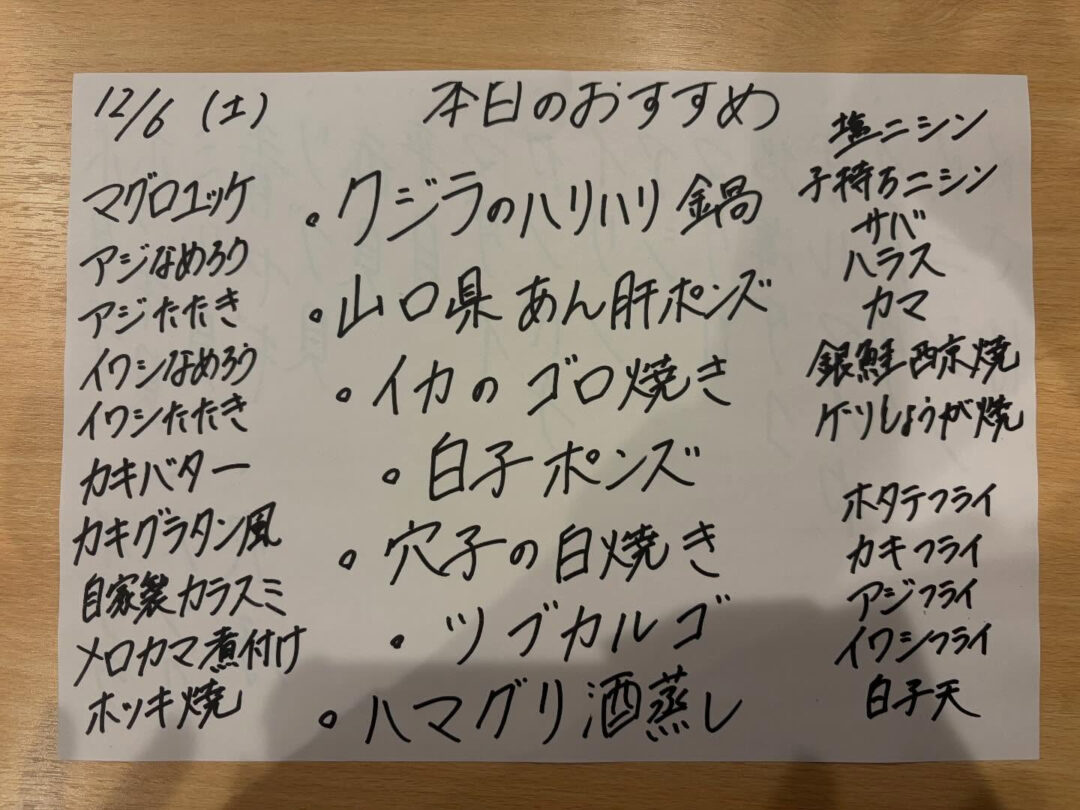 12/6 (土)
本日のおすすめ
マグロユッケ
アジなめろう
アジたたき
イワシなめろう
イワシたたき
カキバター
カキグラタン風
自家製カラスミ
メロカマ煮付け
ホッキ焼
・クジラのハリハリ鍋
・山口県 あん肝ポンズ
・イカのゴロ焼き
・白子ポンズ
・穴子の白焼き
・ツブカルゴ
・ハマグリ酒蒸し
塩ニシン
子持ちニシン
サバ
ハラス
カマ
銀鮭西京焼
ゲソしょうが焼
ホタテフライ
カキフライ
アジフライ
イワシフライ
白子天